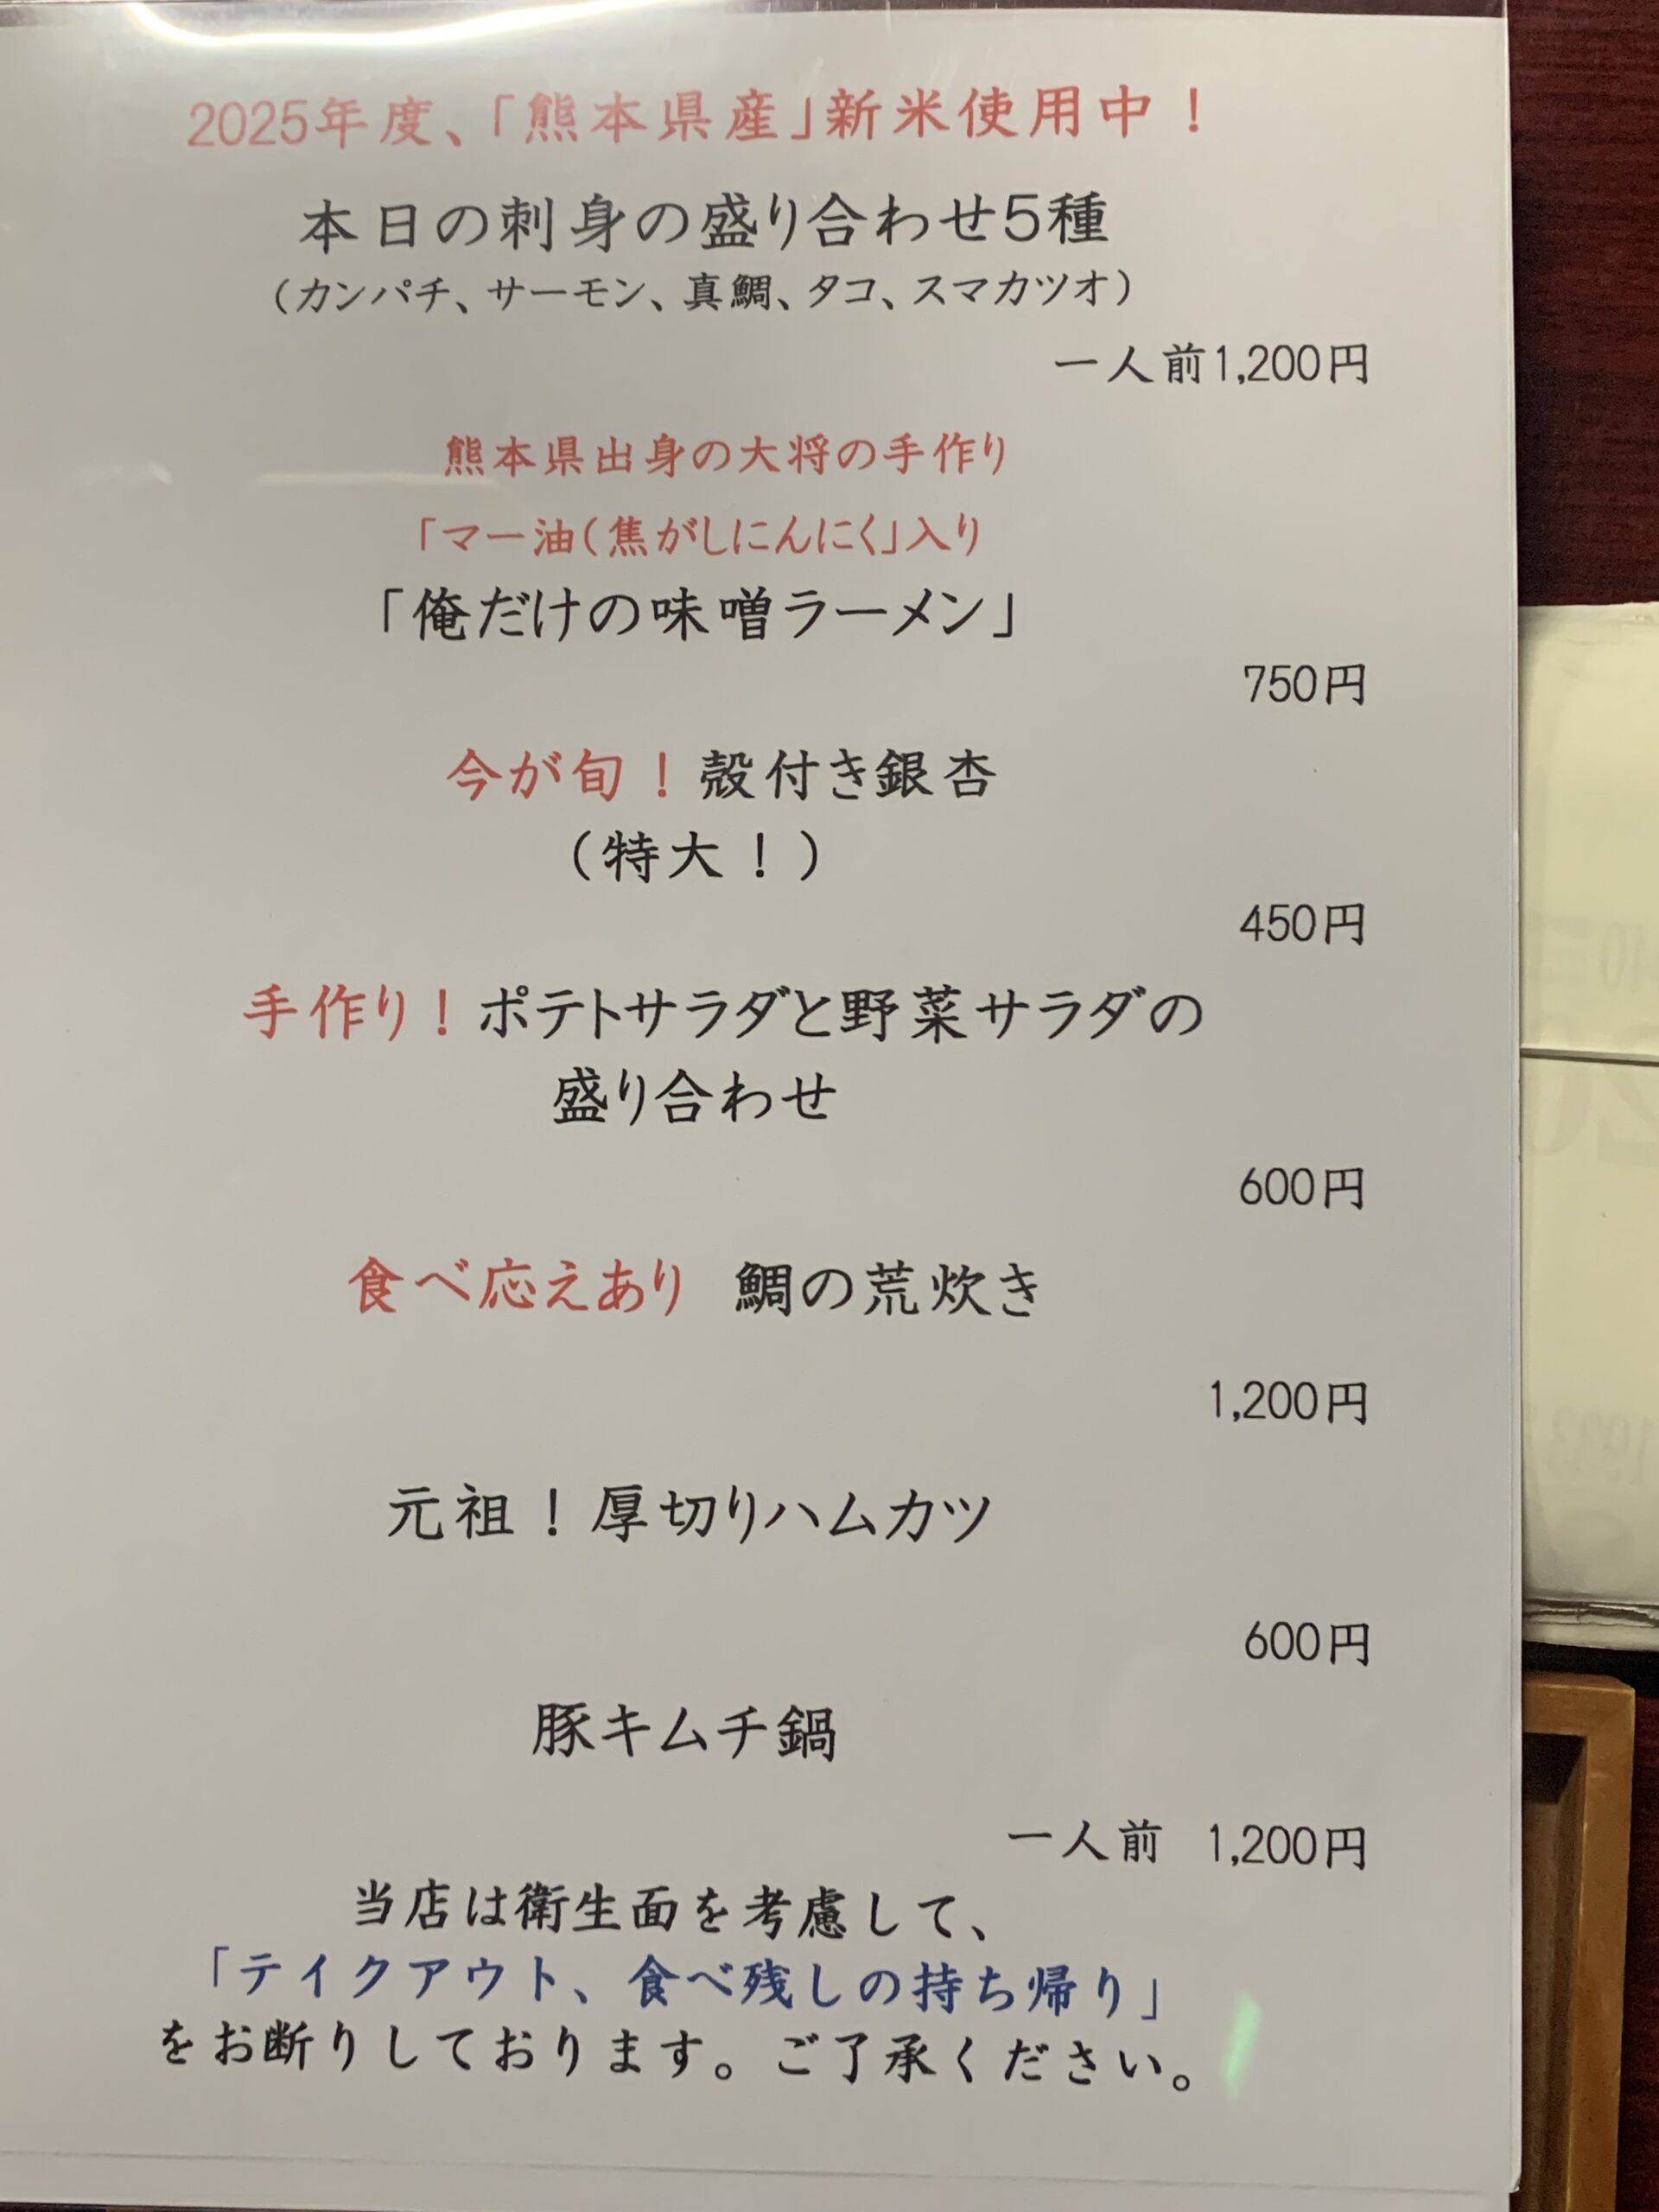 2025年度、「熊本県産」新米使用中！
本日の刺身の盛り合わせ5種
（カンパチ、サーモン、真鯛、タコ、スマカツオ）
一人前1,200円
熊本県出身の大将の手作り
「マー油（焦がしにんにく」入り
「俺だけの味噌ラーメン」
750円
今が旬！殻付き銀杏
（特大！）
450円
手作り！ポテトサラダと野菜サラダの
盛り合わせ
600円
食べ応えあり　鯛の荒炊き
1,200円
元祖！厚切りハムカツ
600円
豚キムチ鍋
一人前　1,200円
当店は衛生面を考慮して、
「テイクアウト、食べ残しの持ち帰り」
をお断りしております。ご了承ください。